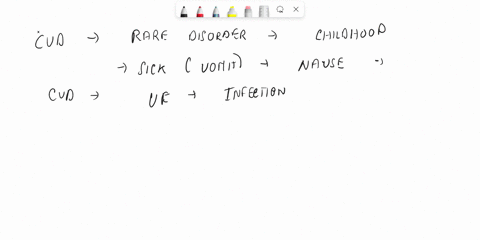 CUD → RARE DISORDER → CHILDHOOD
→ SICK (VOMIT) → NAUSE →
CUD → UR → INFECTION